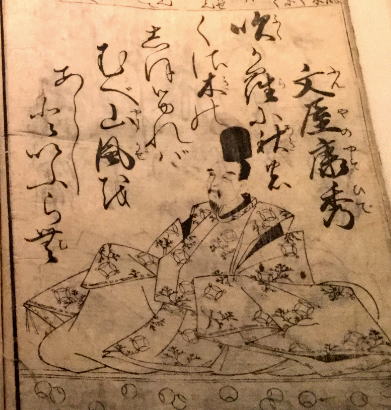 文屋康秀
吹からに秋の
くさ木の
しほるれバ
むべ山風を
あらし
といふらむ